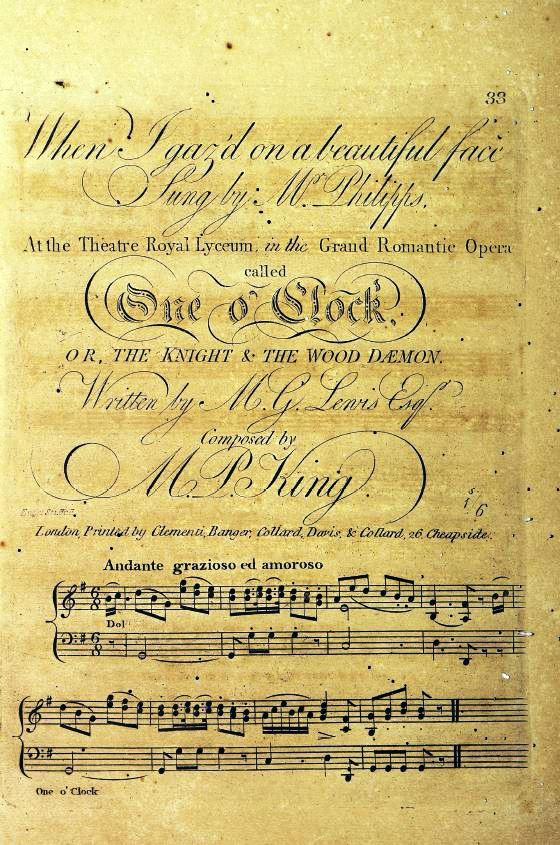 33
When I gaz'd on a beautiful face
Sung by Mr. Philipps,
At the Theatre Royal Lyceum, in the Grand Romantic Opera
called
One o' Clock,
OR, THE KNIGHT & THE WOOD DÆMON.
Written by M. G. Lewis Esqr.
Composed by
M. P. King.
s
1 6
London, Printed by Clementi, Banger, Collard, Davis, & Collard, 26, Cheapside.
Andante grazioso ed amoroso
6 8
Dol
6 8
One o' Clock